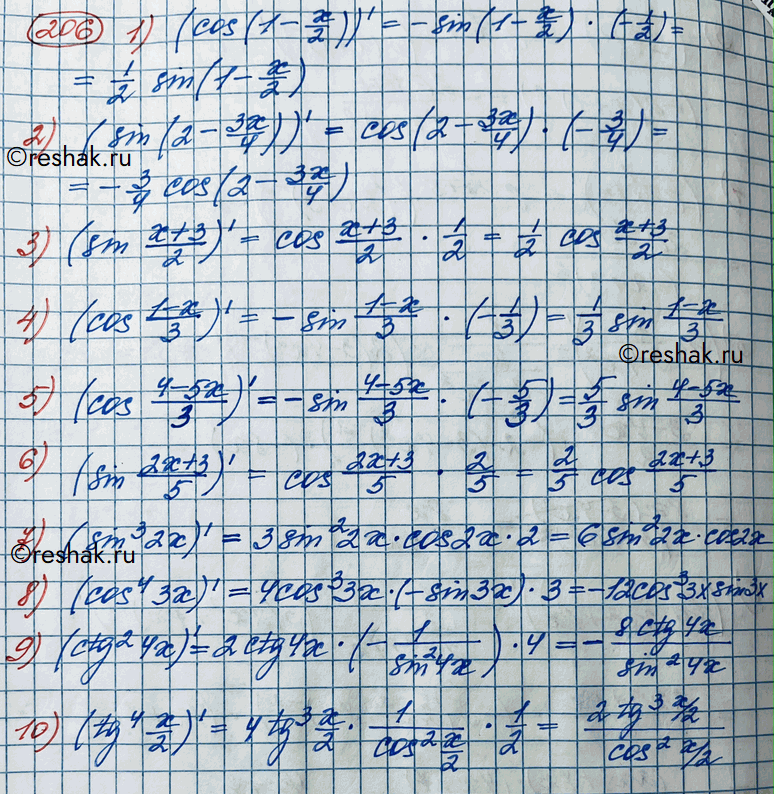 206 1) (cos(1-x/2))' = -sin(1-x/2)·(-1/2)=
= 1/2 sin(1-x/2)
2) (sin(2-3x/4))' = cos(2-3x/4)·(-3/4)=
©reshak.ru
= -3/4 cos(2-3x/4)
3) (sin (x+3)/2)' = cos (x+3)/2 · 1/2 = 1/2 cos (x+3)/2
4) (cos (1-x)/3)' = -sin (1-x)/3 · (-1/3) = 1/3 sin (1-x)/3
©reshak.ru
5) (cos (4-5x)/3)' = -sin (4-5x)/3 · (-5/3) = 5/3 sin (4-5x)/3
6) (sin (2x+3)/5)' = cos (2x+3)/5 · 2/5 = 2/5 cos (2x+3)/5
7) (sin³2x)' = 3sin²2x·cos2x·2 = 6sin²2x·cos2x
©reshak.ru
8) (cos⁴3x)' = 4cos³3x·(-sin3x)·3 = -12cos³3x sin3x
9) (ctg²4x)' = 2ctg4x·(-1/sin²4x)·4 = -8ctg4x/sin²4x
10) (tg⁴ x/2)' = 4tg³ x/2 · 1/cos² x/2 · 1/2 = 2tg³ x/2 / cos² x/2